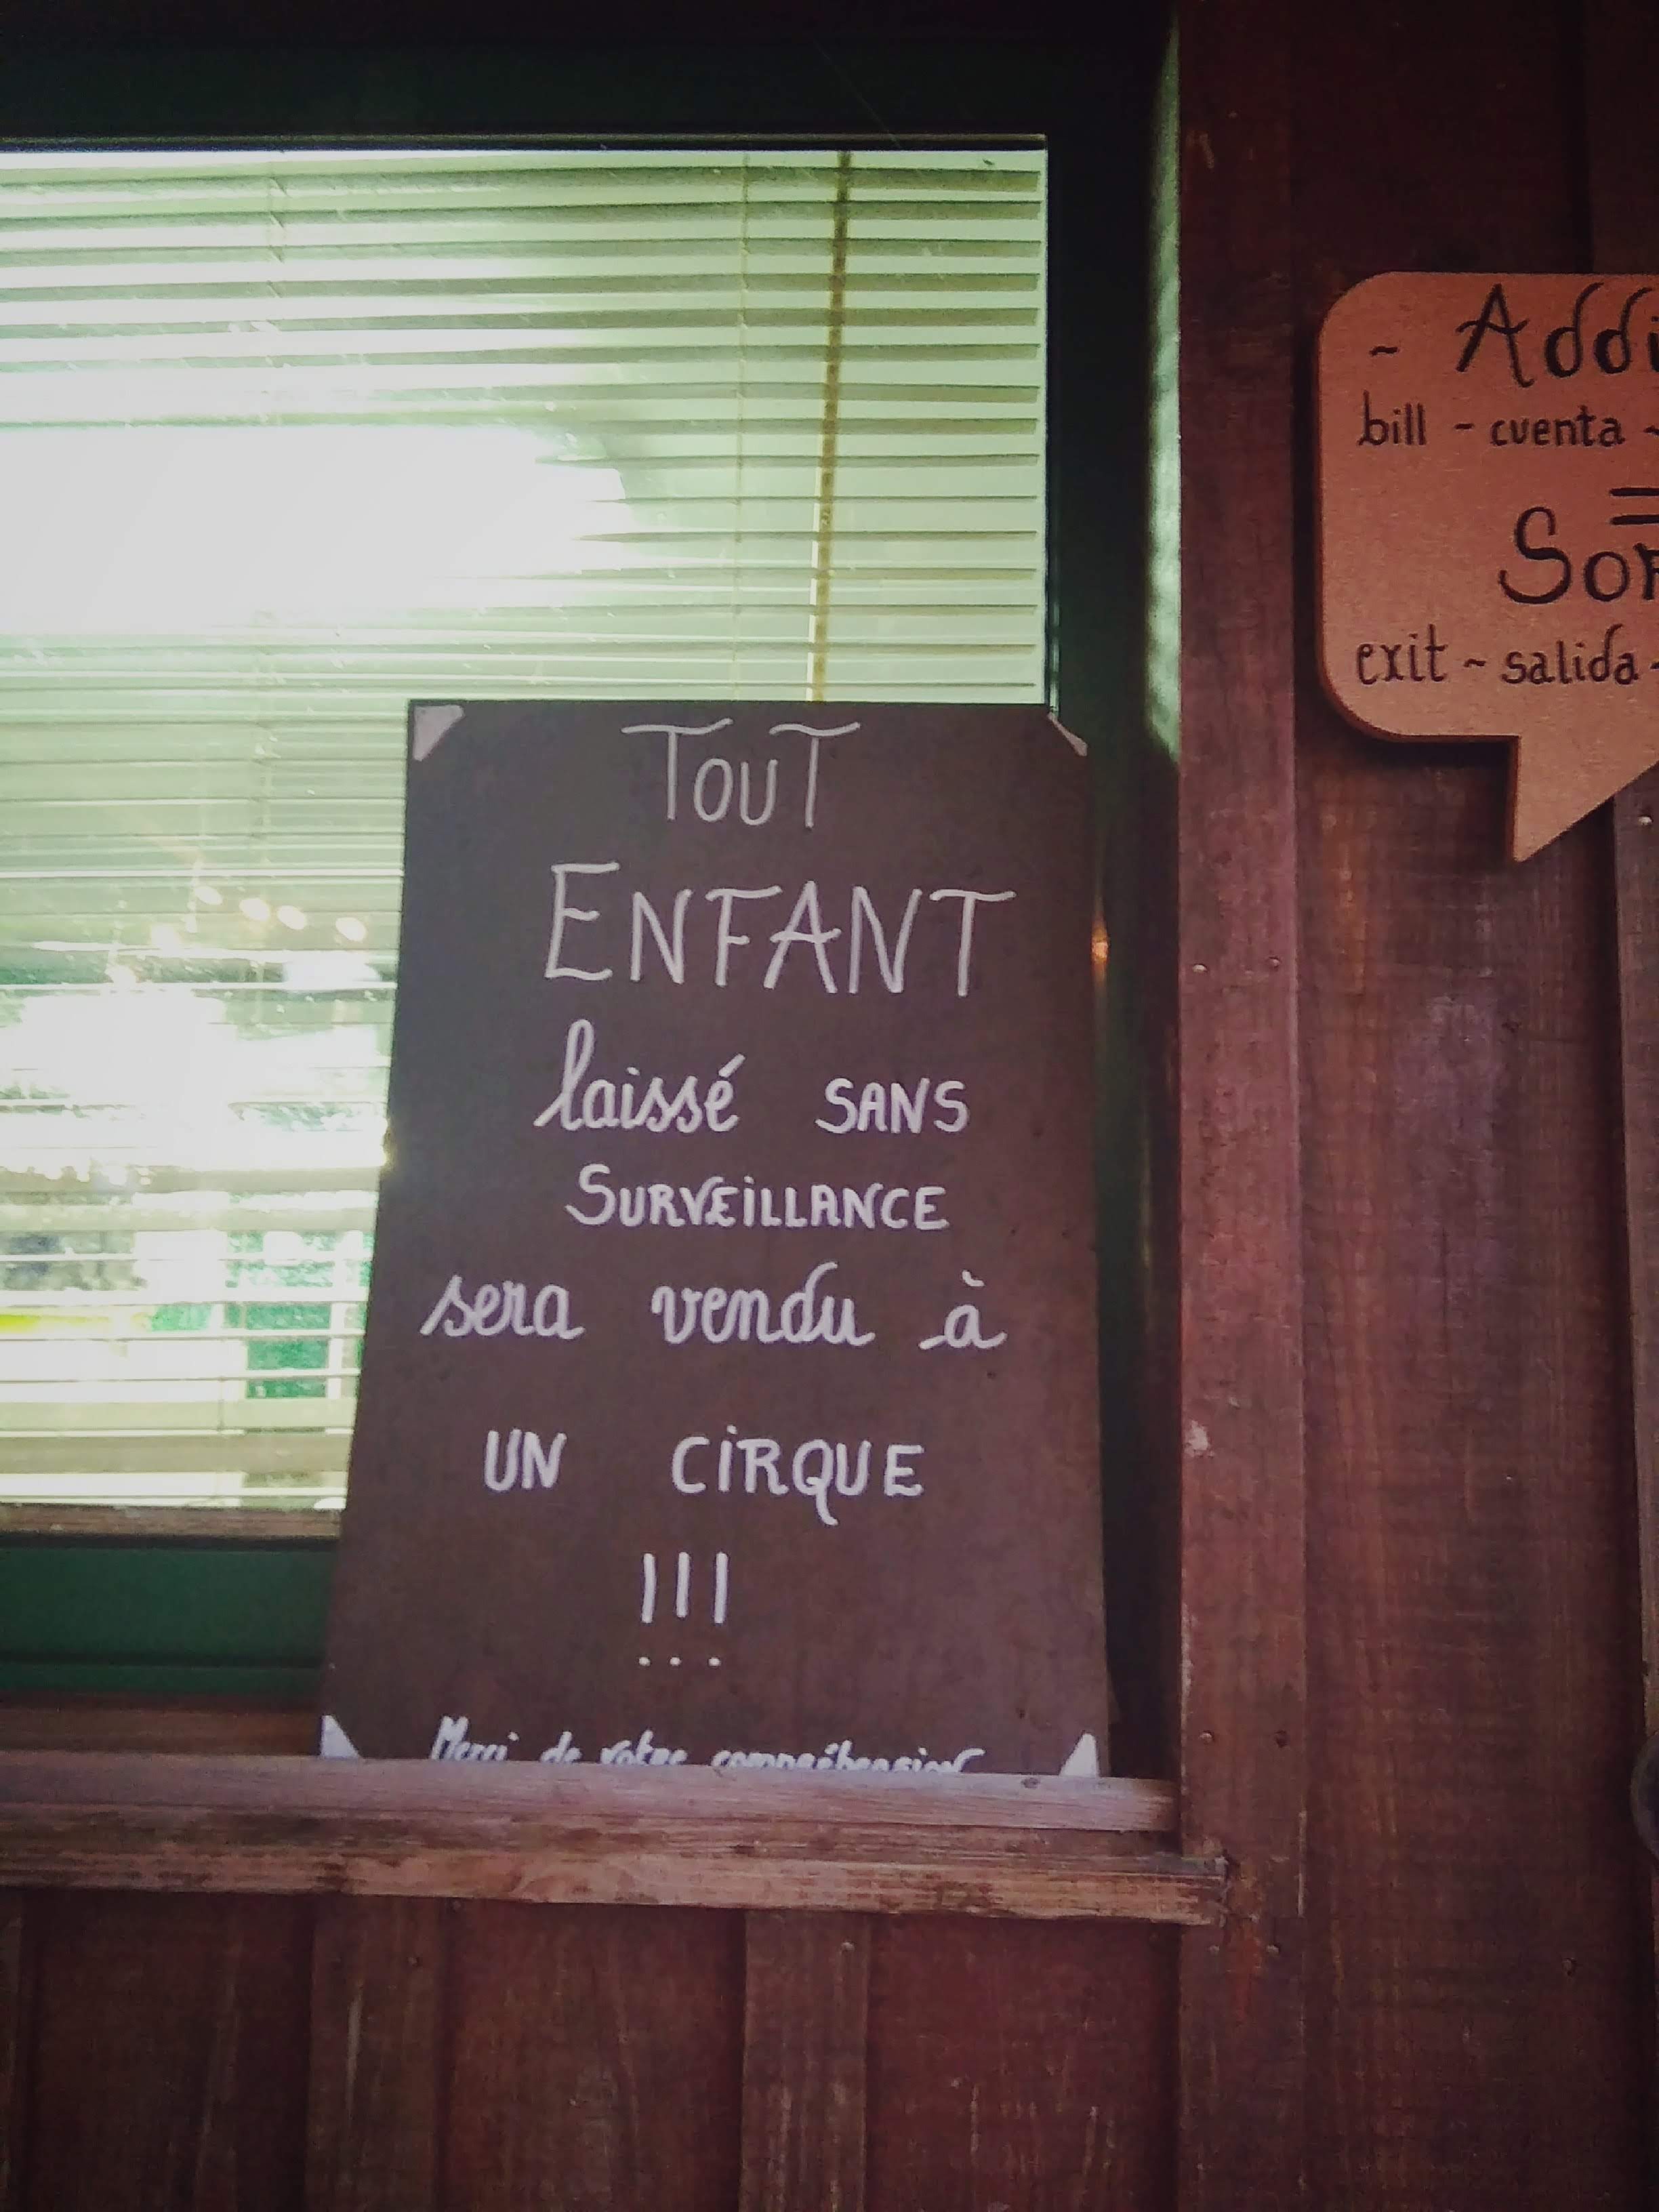 TOUT
ENFANT
laissé SANS
SURVEILLANCE
sera vendu à
UN CIRQUE
!!!
Merci de votre compréhension
~ Addi
bill - cuenta -
Sor
exit ~ salida -